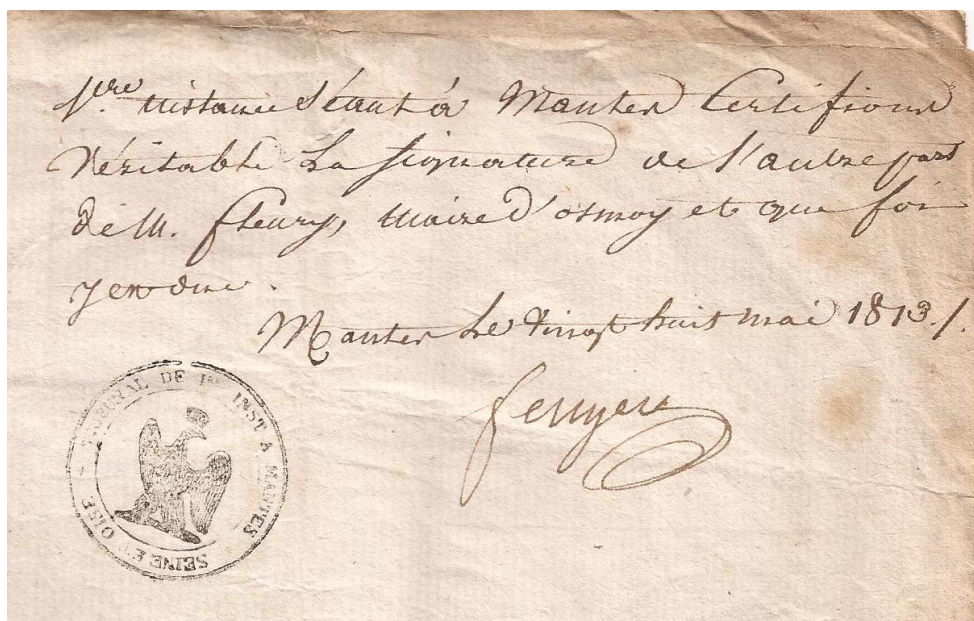 1.re instance séant à Mantes Certifions
Véritable La signature de l'autre part
de M. fleury, Maire d'osmoy et que foi
y est due.
Mantes Le Vingt huit mai 1813./.
feugere
TRIBUNAL DE 1RE INST A MANTES
SEINE ET OISE